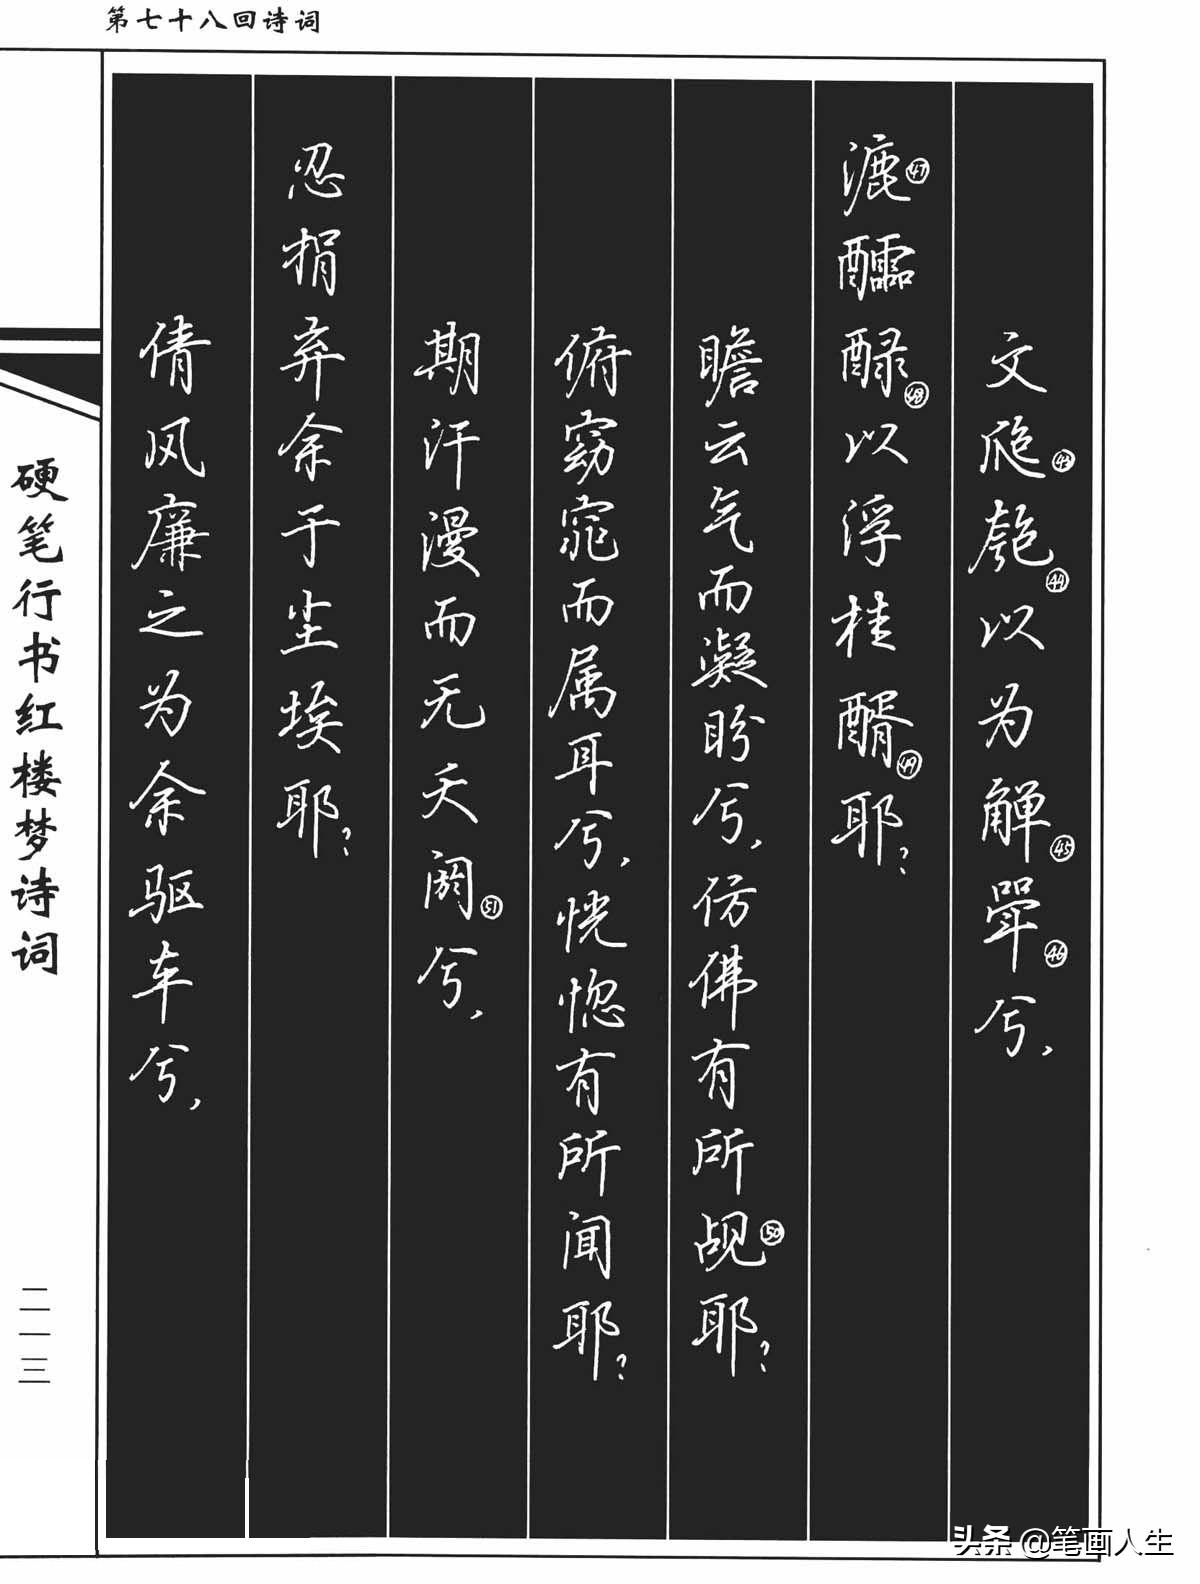 第七十八回诗词
文瓟㊸匏㊹以为觯㊺斝㊻兮，
漉㊼醽醁㊽以浮桂醑㊾耶？
瞻云气而凝盼兮，仿佛有所觇㊿耶？
俯窈窕而属耳兮，恍惚有所闻耶？
期汗漫而无夭阏51兮，
忍捐弃余于尘埃耶？
倩风廉之为余驱车兮，
硬笔行书红楼梦诗词
二一三
头条 @笔画人生